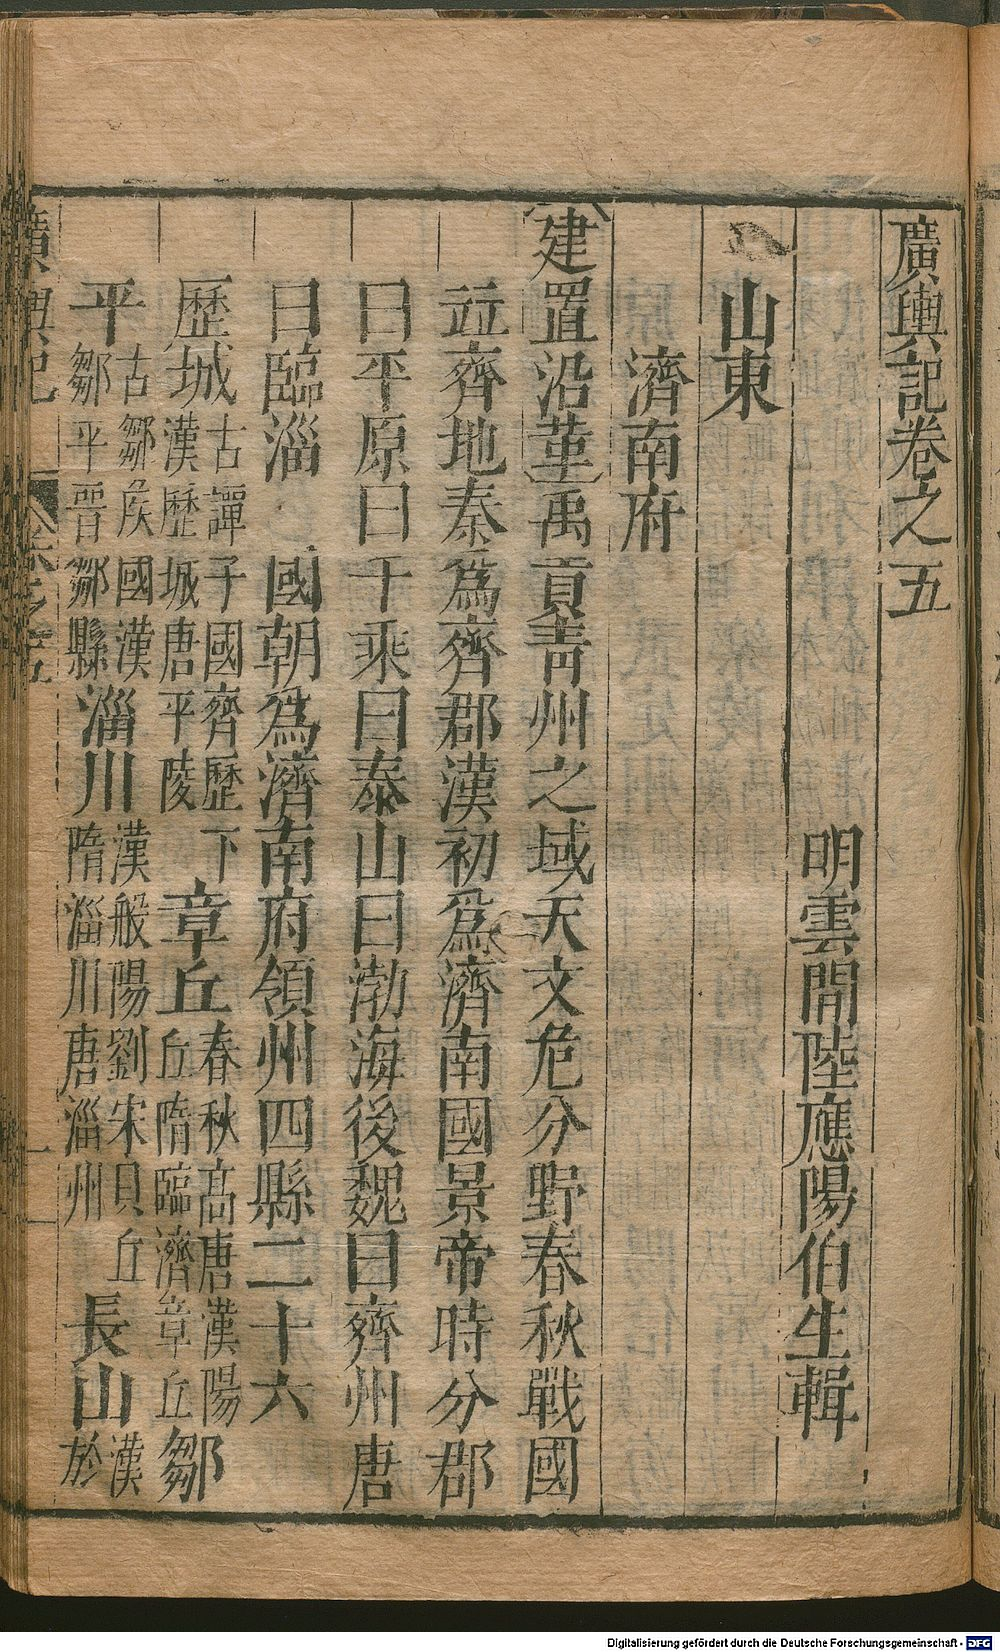 廣輿記卷之五
明雲間陸應陽伯生輯
山東
濟南府
建置沿革禹貢青州之域天文危分野春秋戰國
竝齊地秦爲齊郡漢初爲濟南國景帝時分郡
曰平原曰千乘曰泰山曰渤海後魏曰齊州唐
曰臨淄 國朝爲濟南府領州四縣二十六
歷城古譚子國齊歷下漢歷城唐平陵章丘春秋高唐漢陽丘隋臨濟章丘鄒
平古鄒侯國漢鄒平晋鄒縣淄川漢般陽劉宋貝丘隋淄川唐淄州長山漢於
廣輿記
卷之五
一
Digitalisierung gefördert durch die Deutsche Forschungsgemeinschaft - DFG